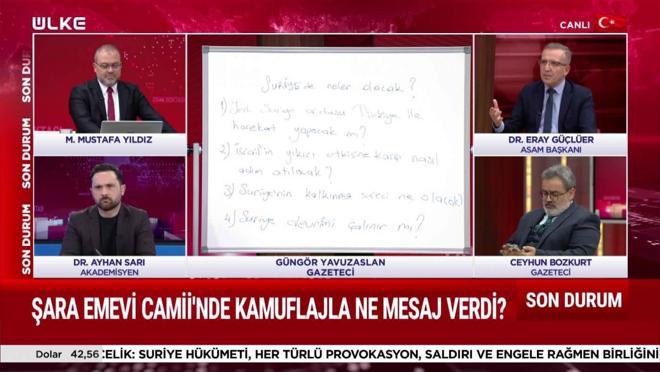 ÜLKE
CANLI
SON DURUM
Suriye'de neler olacak?
1) Yeni Suriye ordusu Türkiye ile
harekat yapacak mı?
2) İsrail'in yıkıcı etkisine karşı nasıl
adım atılacak?
3) Suriye'nin kalkınma süreci ne olacak
4) Suriye devrimi çalınır mı?
M. MUSTAFA YILDIZ
DR. ERAY GÜÇLÜER
ASAM BAŞKANI
SON DURUM
DR. AYHAN SARI
AKADEMİSYEN
GÜNGÖR YAVUZASLAN
GAZETECİ
CEYHUN BOZKURT
GAZETECİ
ŞARA EMEVİ CAMİİ'NDE KAMUFLAJLA NE MESAJ VERDİ?
SON DURUM
Dolar 42,56
ÇELİK: SURİYE HÜKÜMETİ, HER TÜRLÜ PROVOKASYON, SALDIRI VE ENGELE RAĞMEN BİRLİĞİN